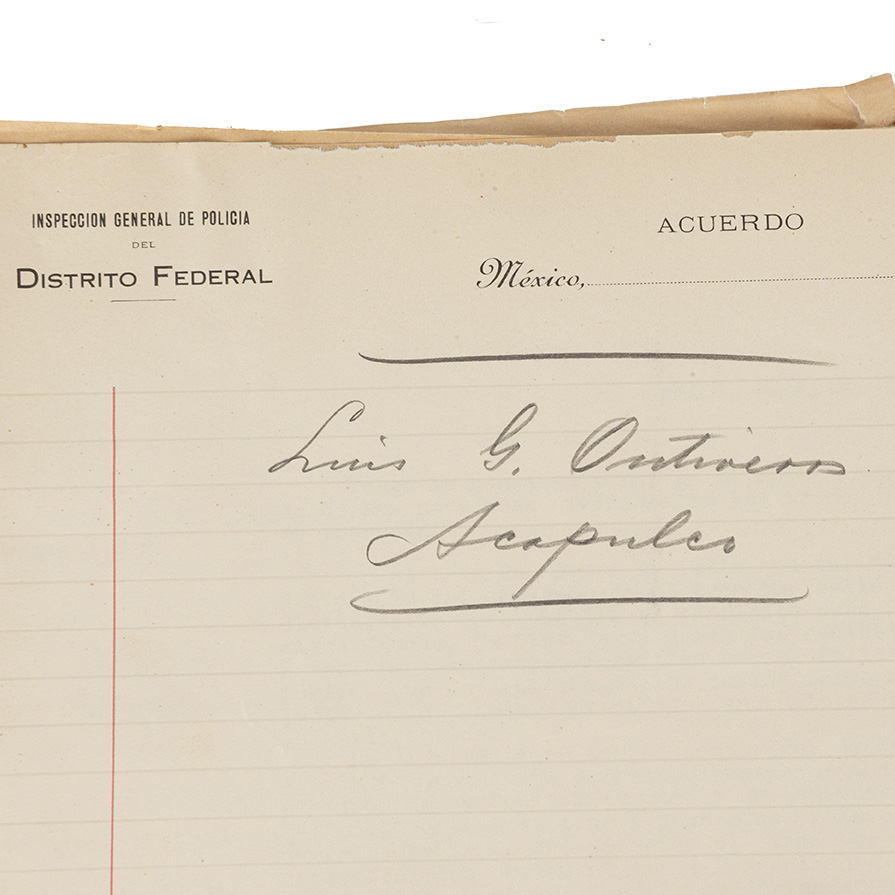 INSPECCION GENERAL DE POLICIA
DEL
DISTRITO FEDERAL
ACUERDO
México,
Luis G. Ontiveros
Acapulco